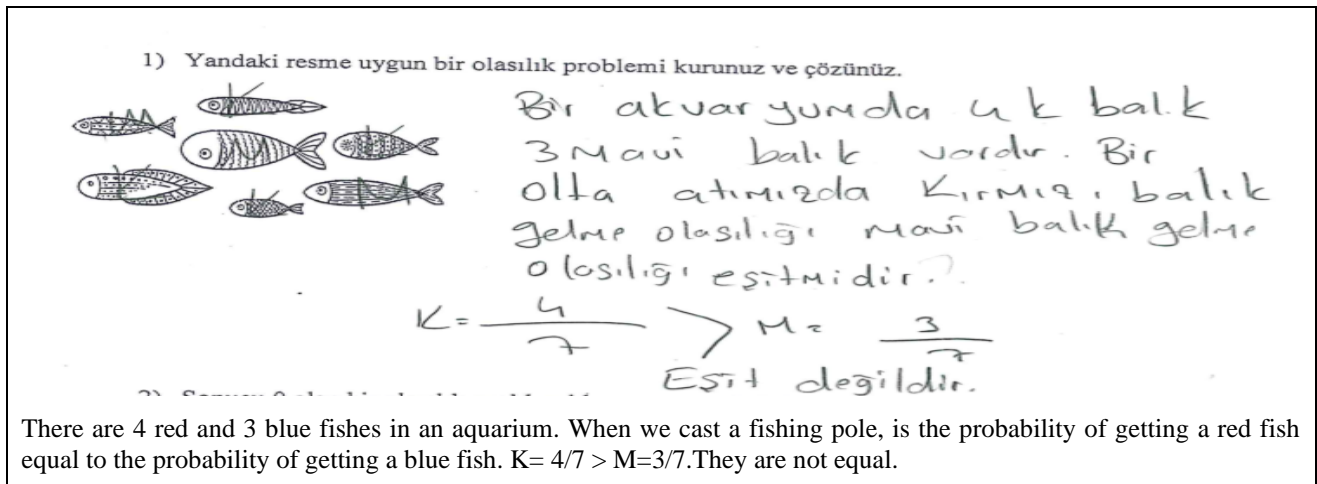 1) Yandaki resme uygun bir olasılık problemi kurunuz ve çözünüz.
Bir akvaryumda 4 k balık
3 Mavi balık vardır. Bir
olta atımızda Kırmızı balık
gelme olasılığı mavi balık gelme
olasılığı eşitmidir.?
K= 4/7 > M= 3/7
Eşit değildir.
There are 4 red and 3 blue fishes in an aquarium. When we cast a fishing pole, is the probability of getting a red fish
equal to the probability of getting a blue fish. K= 4/7 > M=3/7.They are not equal.